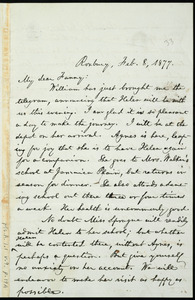 Roxbury, Feb. 8, 1877.
My dear Fanny:
William has just brought me the
telegram, announcing that Helen will be with
us this evening. I am glad it is so pleasant
a day to make the journey. I will be at the
depot on her arrival. Agnes is here, leap-
ing for joy that she is to have Helen again
for a companion. She goes to Mrs.
school at Jamaica Plain, but returns in
season for dinner. She also attends a danc-
ing school two or three times
a week. Her health is uncommonly good.
No doubt Miss Sprague will readily
admit Helen to her school; but whether
will be contented there, without Agnes, is
perhaps a question. But give yourself
no anxiety on her account. We will
endeavor to make her visit as happy as
possible.